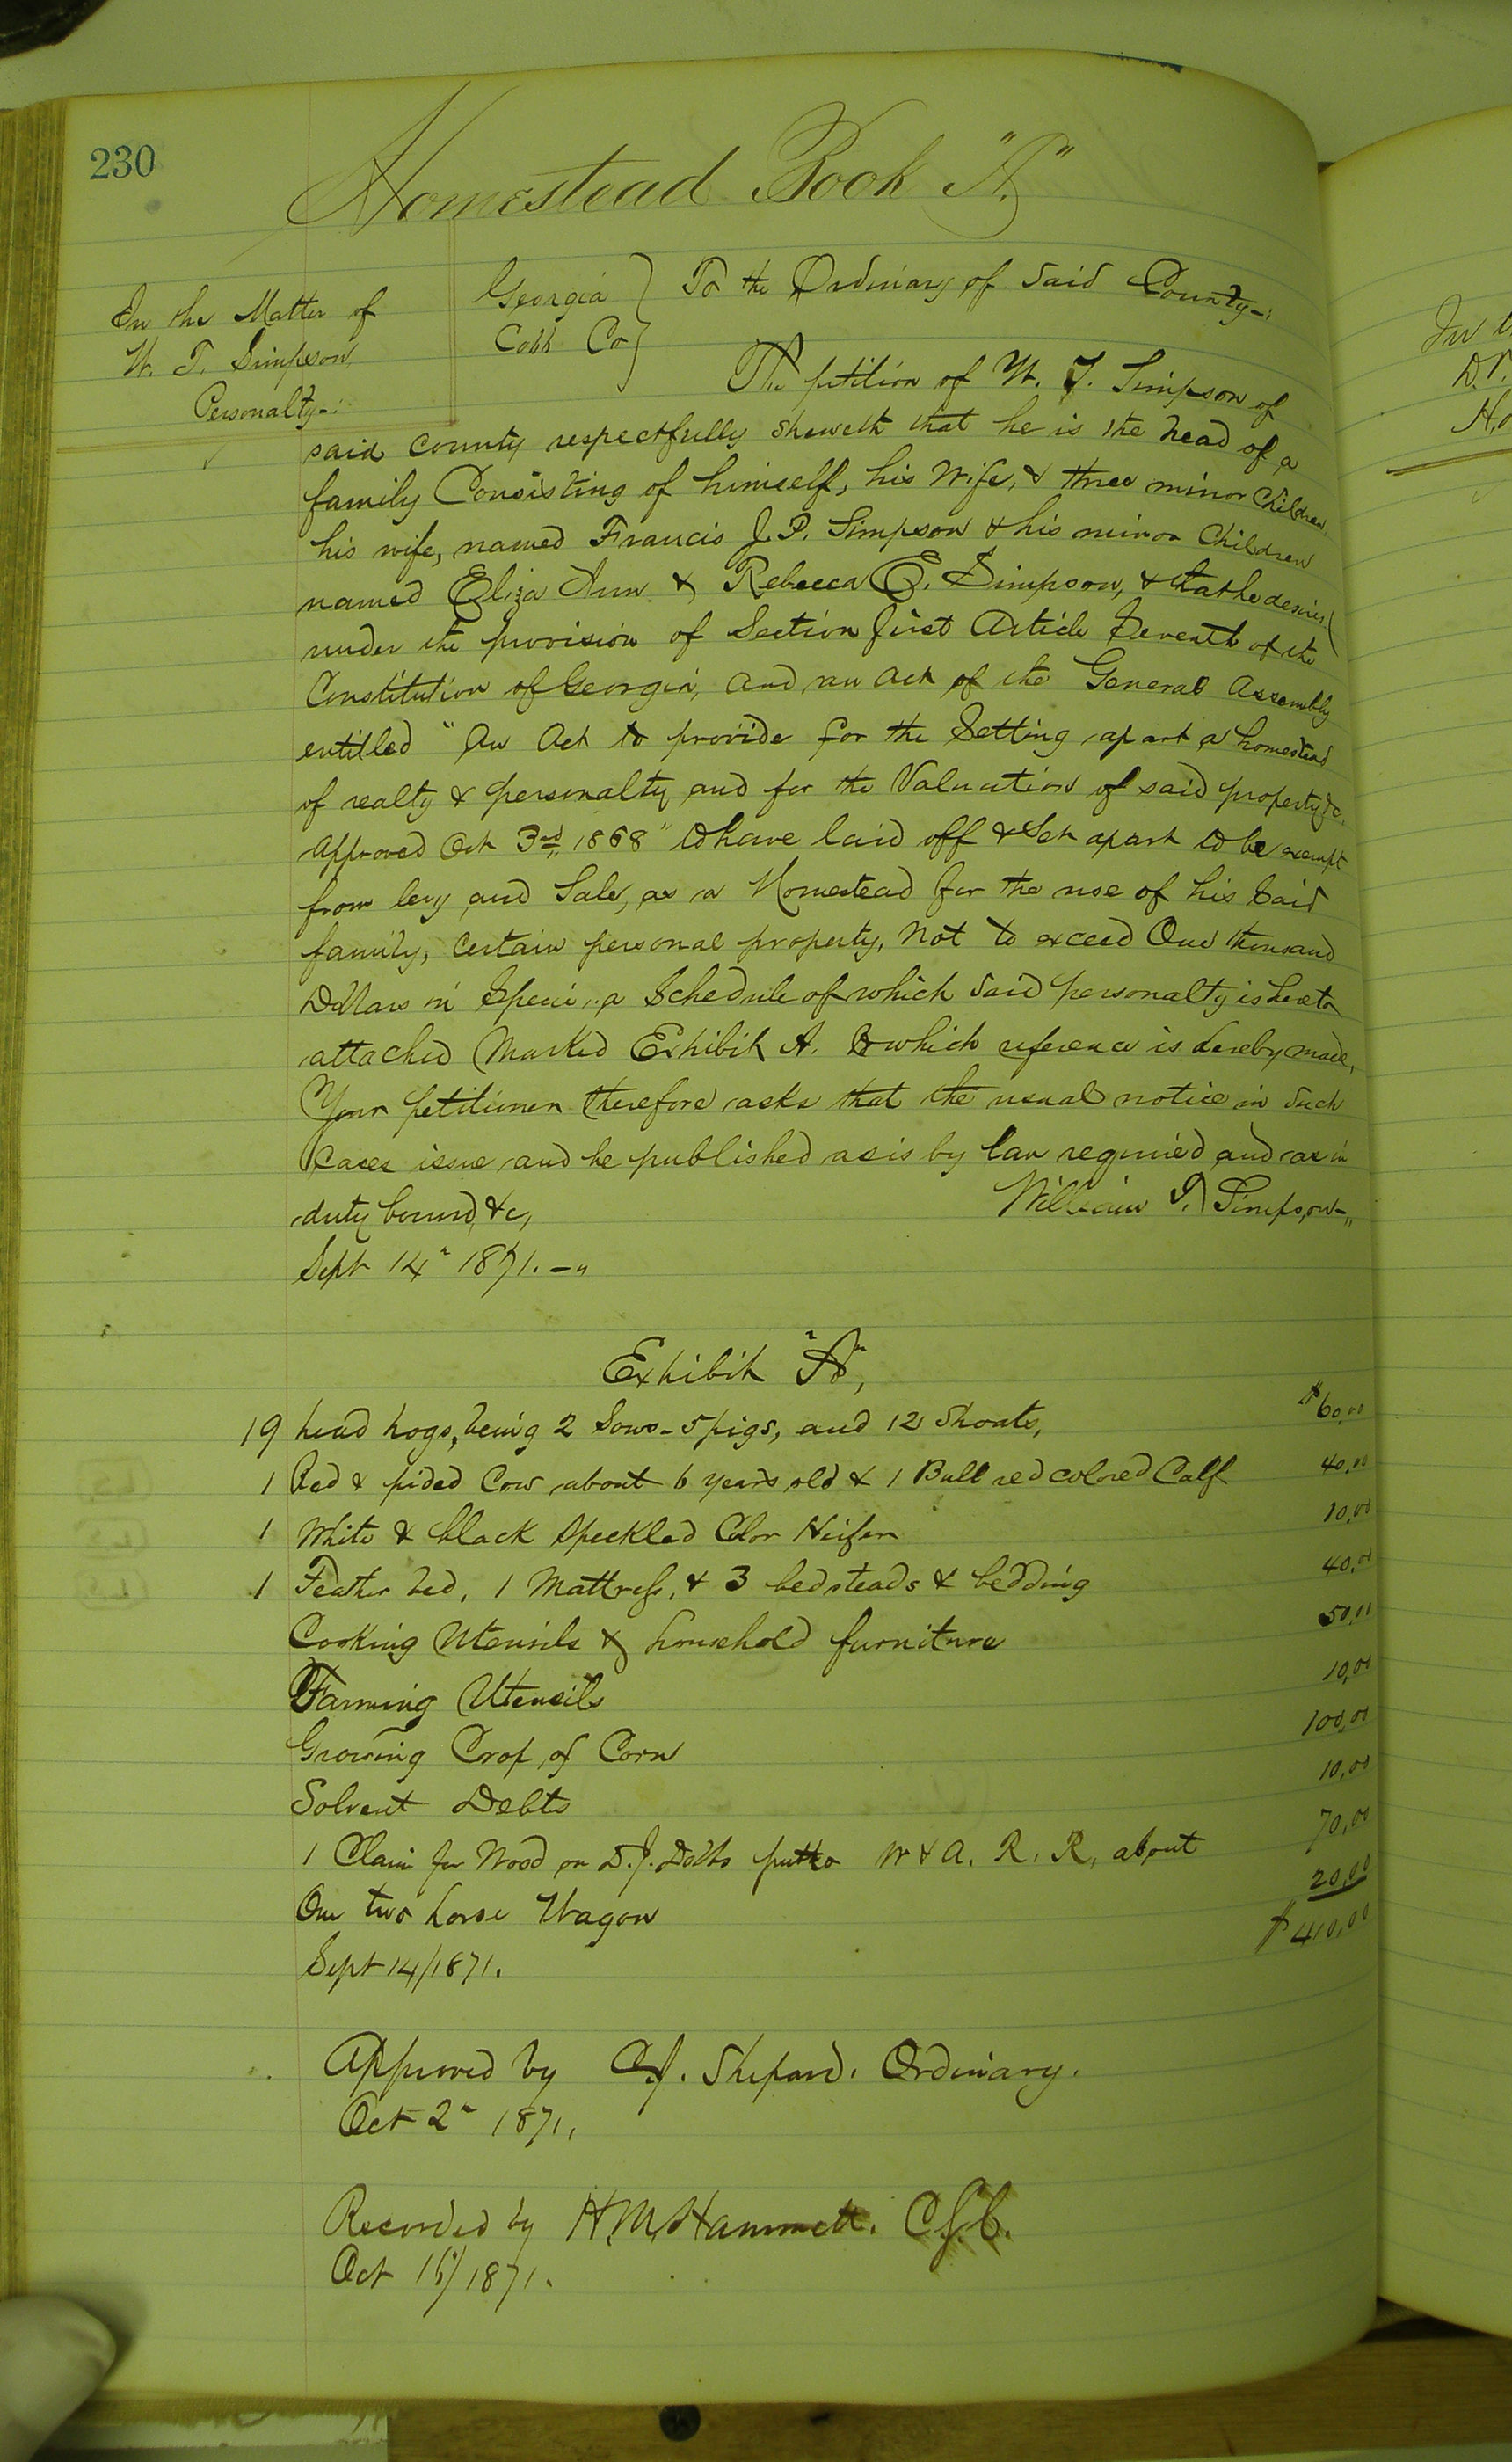 230
Homestead Book "A."
In the Matter of
W. T. Simpson
Personalty-:
Georgia
Cobb Co
To the Ordinary of Said County-:
The petition of W. T. Simpson of
said County respectfully sheweth that he is the head of a
family Consisting of himself, his Wife, & three minor Children,
his wife, named Francis J. P. Simpson & his minor Children
named Eliza Ann & Rebecca E. Simpson, & that he desires
under the provision of Section first Article Seventh of the
Constitution of Georgia, and an act of the General Assembly
entitled "An Act to provide for the Setting apart a homestead
of realty & personalty and for the Valuation of said property &c.
Approved Oct 3rd, 1868" to have laid off & Set apart to be exempt
from levy and Sale, as a Homestead for the use of his Said
family, Certain personal property, Not to exceed One thousand
Dollars in Specie, a Schedule of which Said personalty is hereto
attached Marked Exhibit A. to which reference is hereby made,
Your petitioner therefore asks that the usual notice in Such
Cases issue and be published as is by law required and as in
duty bound, &c,
William T. Simpson-"
Sept 14" 1871. -"
Exhibit "A",
19 head hogs, being 2 Sows- 5 pigs, and 12 Shoats, $60,00
1 Red & pided Cow about 6 years old & 1 Bull red colored Calf 40,00
1 White & black Speckled Color Heifer 10,00
1 Feather bed, 1 Mattress, & 3 bedsteads & bedding 40,00
Cooking Utensils & household furniture 50,00
Farming Utensils 10,00
Growing Crop of Corn 100,00
Solvent Debts 10,00
1 Claim for Wood on D. J. Dobbs W & A. R. R, about 70,00
One two horse Wagon 20,00
$410,00
Sept 14/1871.
Approved by C. J. Shepard. Ordinary.
Oct 2" 1871,
Recorded by H. M. Hammett. C. S. C.
Oct /1871.
In
D.P.